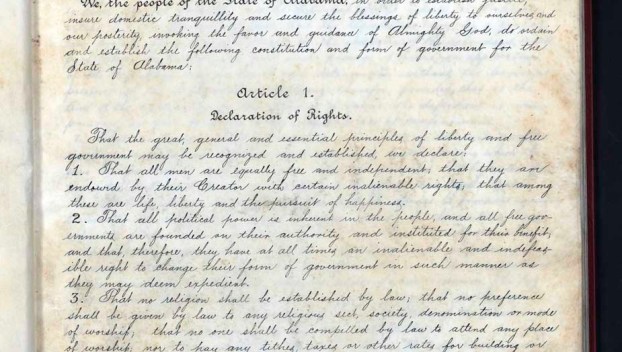 We, the people of the State of Alabama, in order to establish justice,
insure domestic tranquillity and secure the blessings of liberty to ourselves and
our posterity, invoking the favor and guidance of Almighty God, do ordain
and establish the following constitution and form of government for the
State of Alabama:
Article 1.
Declaration of Rights.
That the great, general and essential principles of liberty and free
government may be recognized and established, we declare:
1. That all men are equally free and independent; that they are
endowed by their Creator with certain inalienable rights; that among
these are life, liberty and the pursuit of happiness.
2. That all political power is inherent in the people, and all free gov-
ernments are founded on their authority, and instituted for their benefit;
and that, therefore, they have at all times an inalienable and indefeas-
ible right to change their form of government in such manner as
they may deem expedient.
3. That no religion shall be established by law; that no preference
shall be given by law to any religious sect, society, denomination or mode
of worship; that no one shall be compelled by law to attend any place
of worship; nor to pay any tithes, taxes or other rates for building or